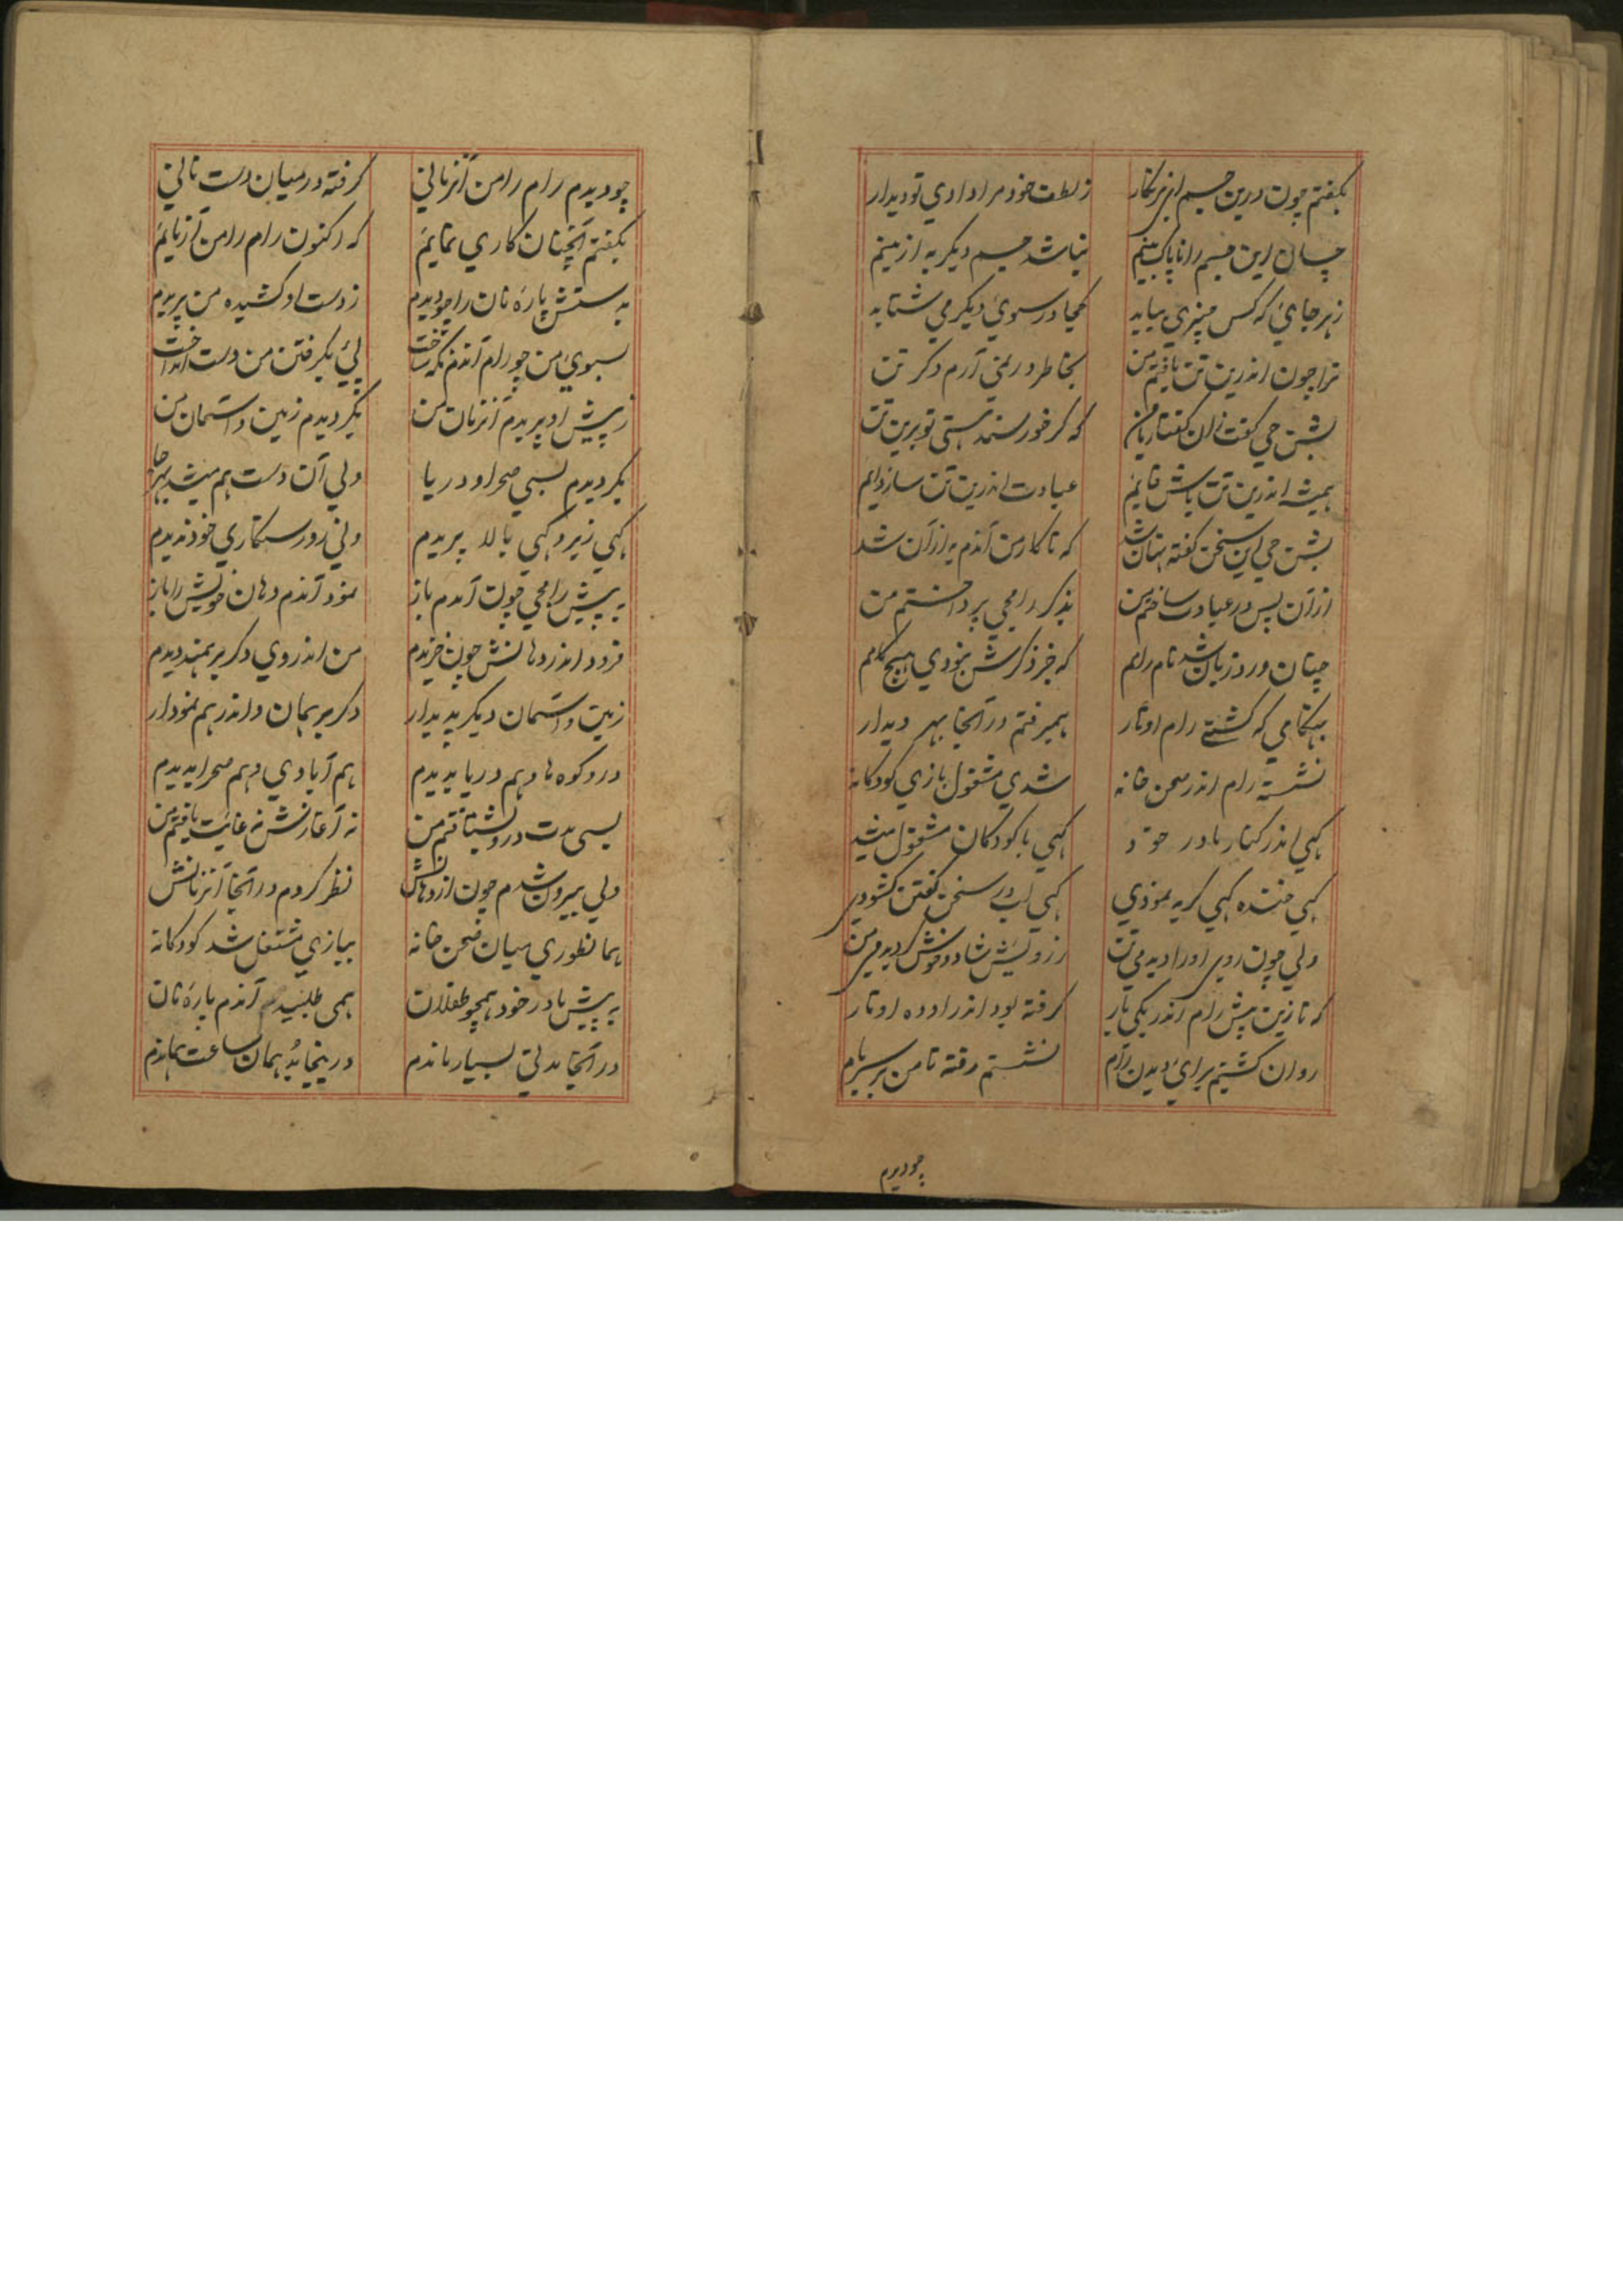 بکفتم چون درین جسم ای نکوکار ز لطف خود مرا دادی تو دیدار
چسان این جسم را ناپاک بینم نباشد جسم دیگر به ازینم
ز هر جای که کس چیزی بیابد کجا در سوی دیکر می شتابد
ترا چون اندرین تن یافتم من بخاطر در نمی آرم دکر تن
بشن جی کفت زان کفتار با من که کر خورسند هستی تو برین تن
همیشه اندرین تن باش قایم عبادت اندرین تن ساز دایم
بشن جی این سخن کفته نهان شد که تا کار من آندم به ازان شد
ازان پس در عبادت ساختم من بذکر رامجی پرداختم من
چنان ورد زبان شد نام رامم که جز ذکرش نبودی هیچ کامم
بهنکامی که کشتی رام اوتار همیرفتم در آنجا بهر دیدار
نشسته رام اندر صحن خانه شدی مشغول بازی کودکانه
کهی اندر کنار مادر خود کهی با کودکان مشغول میشد
کهی خنده کهی کریه نمودی کهی لب در سخن کفتن کشودی
ولی چون روی او را دیدمی من ز رویش شاد و خوش کردیدمی من
که تا زین پیش رام اندر یکی بار کرفته بود اندر اوده اوتار
روان کشتم برای دیدن رام نشستم رفته تا من بر سر بام
چو دیدم
چو دیدم رام را من آنزمانی کرفته در میان دست نانی
بکفتم آنچنان کاری نمایم که اکنون رام را من آزمایم
به دستش پارهٔ نان را چو دیدم ز دست او کشیده من پریدم
بسوی من چو رام آندم نکه ساخت پی بکرفتن من دست انداخت
ز پیش او پریدم آنزمان من بکردیدم زمین و آسمان من
بکردیدم بسی صحرا و دریا ولی آن دست هم میشد بهر جا
کهی زیر و کهی بالا پریدم ولی روی رستکاری خود ندیدم
به پیش رامجی چون آمدم باز نمود آندم دهان خویش را باز
فرود اندر دهانش چون خزیدم من اندر وی دکر برهمند دیدم
زمین و آسمان دیکر پدیدار دکر برهمان و اندر هم نمودار
درو کوه ها و هم دریا بدیدم هم آبادی و هم صحرا بدیدم
بسی مدت درو بشتافتم من نه آغازش نه غایت یافتم من
ولی بیرون شدم چون از دهانش نظر کردم در آنجا آنزمانش
همانطوری میان صحن خانه ببازی مشتغل شد کودکانه
به پیش مادر خود همچو طفلان همی طلبید آندم پارهٔ نان
در آنجا مدتی بسیار ماندم درینجا بد همان ساعت بماندم